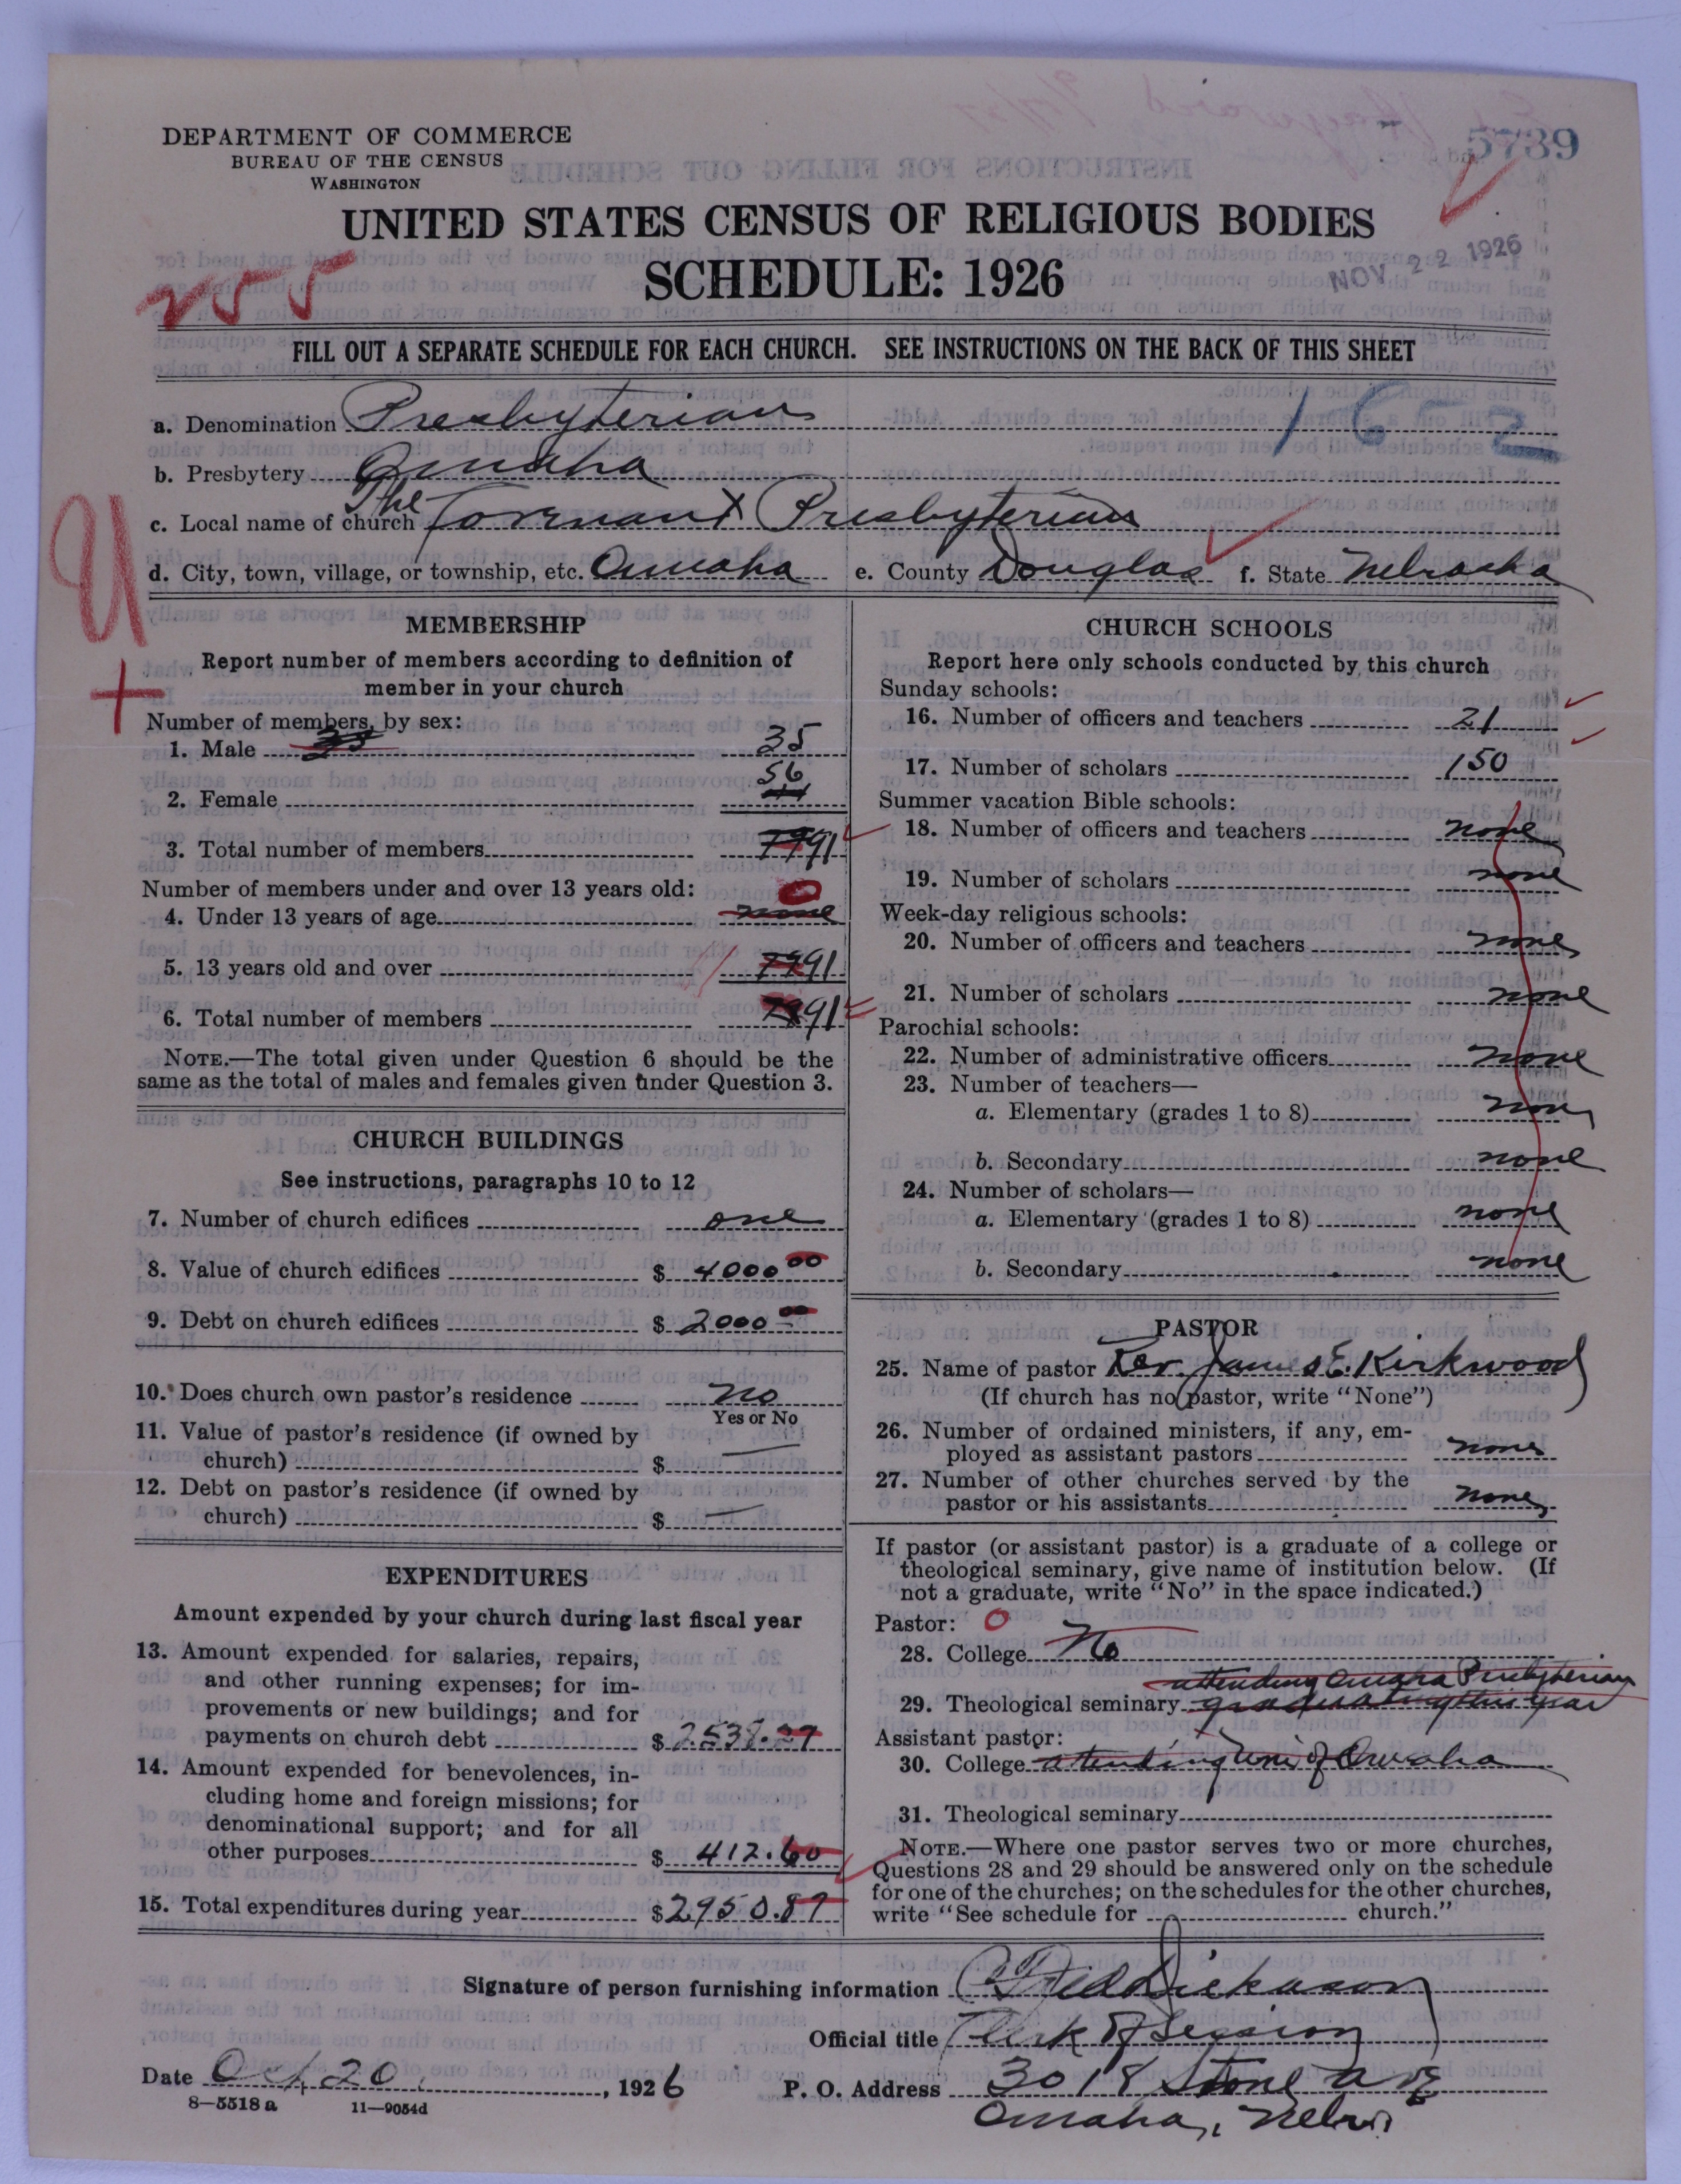 5739
DEPARTMENT OF COMMERCE
BUREAU OF THE CENSUS
WASHINGTON
UNITED STATES CENSUS OF RELIGIOUS BODIES
SCHEDULE: 1926
NOV 22 1926
255
FILL OUT A SEPARATE SCHEDULE FOR EACH CHURCH. SEE INSTRUCTIONS ON THE BACK OF THIS SHEET
1652
a. Denomination Presbyterian
b. Presbytery Omaha
c. Local name of church The Covenant Presbyterian
d. City, town, village, or township, etc. Omaha e. County Douglas f. State Nebraska
U
+
MEMBERSHIP
Report number of members according to definition of
member in your church
Number of members, by sex:
1. Male 35 35
2. Female 56 44
3. Total number of members 79 91
Number of members under and over 13 years old:
4. Under 13 years of age none 0
5. 13 years old and over 79 91
6. Total number of members 91
NOTE.—The total given under Question 6 should be the
same as the total of males and females given under Question 3.
CHURCH BUILDINGS
See instructions, paragraphs 10 to 12
7. Number of church edifices one
8. Value of church edifices $ 4000 00
9. Debt on church edifices $ 2000 00
10. Does church own pastor's residence no
Yes or No
11. Value of pastor's residence (if owned by
church) $ —
12. Debt on pastor's residence (if owned by
church) $ —
EXPENDITURES
Amount expended by your church during last fiscal year
13. Amount expended for salaries, repairs,
and other running expenses; for im-
provements or new buildings; and for
payments on church debt $ 2538.27
14. Amount expended for benevolences, in-
cluding home and foreign missions; for
denominational support; and for all
other purposes $ 412.60
15. Total expenditures during year $ 2950.87
CHURCH SCHOOLS
Report here only schools conducted by this church
Sunday schools:
16. Number of officers and teachers 21
17. Number of scholars 150
Summer vacation Bible schools:
18. Number of officers and teachers none
19. Number of scholars none
Week-day religious schools:
20. Number of officers and teachers none
21. Number of scholars none
Parochial schools:
22. Number of administrative officers none
23. Number of teachers—
a. Elementary (grades 1 to 8) none
b. Secondary none
24. Number of scholars—
a. Elementary (grades 1 to 8) none
b. Secondary none
PASTOR
25. Name of pastor Rev. James E. Kirkwood
(If church has no pastor, write "None")
26. Number of ordained ministers, if any, em-
ployed as assistant pastors none
27. Number of other churches served by the
pastor or his assistants none
If pastor (or assistant pastor) is a graduate of a college or
theological seminary, give name of institution below. (If
not a graduate, write "No" in the space indicated.)
Pastor: 0
28. College No
attending Omaha Presbyterian
29. Theological seminary graduating this year
Assistant pastor:
30. College attending Uni of Omaha
31. Theological seminary
NOTE.—Where one pastor serves two or more churches,
Questions 28 and 29 should be answered only on the schedule
for one of the churches; on the schedules for the other churches,
write "See schedule for church."
Signature of person furnishing information Fred Dickason
Official title Clerk of Session
Date Oct 20, 1926 P. O. Address 3018 Stone Ave
Omaha, Nebr.
8—5518 a 11—9054d